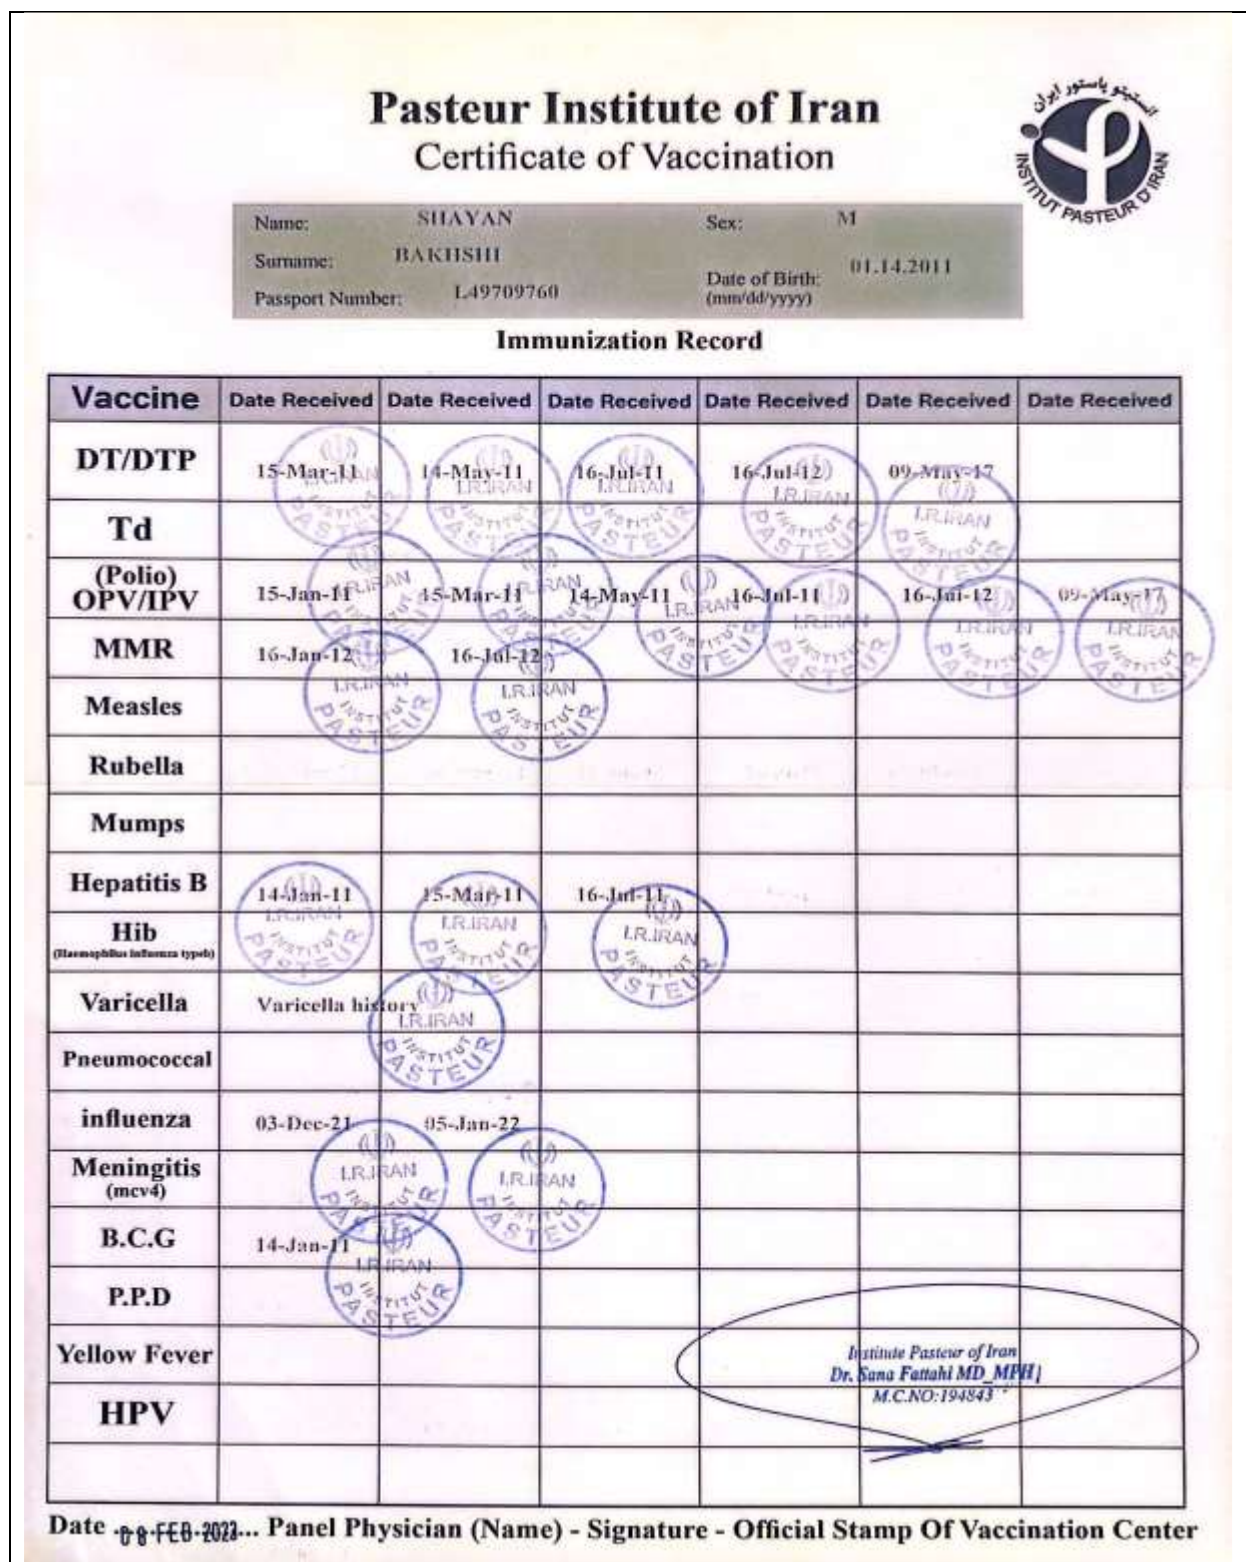 Pasteur Institute of Iran
Certificate of Vaccination
انستیتو پاستور ایران
INSTITUT PASTEUR D'IRAN
Name: SHAYAN Sex: M
Surname: BAKHSHI Date of Birth: 01.14.2011
Passport Number: L49709760 (mm/dd/yyyy)
Immunization Record
Vaccine Date Received Date Received Date Received Date Received Date Received Date Received
DT/DTP 15-Mar-11 14-May-11 16-Jul-11 16-Jul-12 09-May-17
Td
(Polio)
OPV/IPV 15-Jan-11 15-Mar-11 14-May-11 16-Jul-11 16-Jul-12 09-May-17
MMR 16-Jan-12 16-Jul-12
Measles
Rubella
Mumps
Hepatitis B 14-Jan-11 15-Mar-11 16-Jul-11
Hib
(Haemophilus influenza typeb)
Varicella Varicella history
Pneumococcal
influenza 03-Dec-21 05-Jan-22
Meningitis
(mcv4)
B.C.G 14-Jan-11
P.P.D
Yellow Fever
HPV
I.R.IRAN
INSTITUT
PASTEUR
Institute Pasteur of Iran
Dr. Sana Fattahi MD_MPH
M.C.NO:194843
Date 08 FEB 2023... Panel Physician (Name) - Signature - Official Stamp Of Vaccination Center